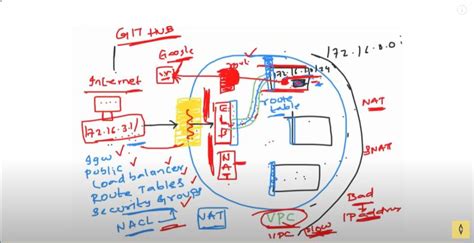 GIT HUB
Google
Internet
172.16.3.1/
route
172.16.0.0
route
table
NAT
SNAT
igw
public
Load balancer
Route Tables
Security Groups
NACL
NAT
ELB
NAT
VPC
VPC
Bad
IP address